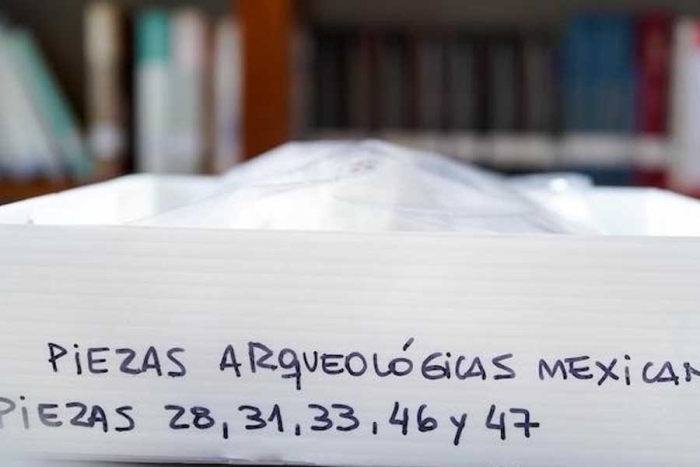 PiEZAS ARQUEOLÓGiCAS MEXiCAN
PiEZAS 28, 31, 33, 46 y 47